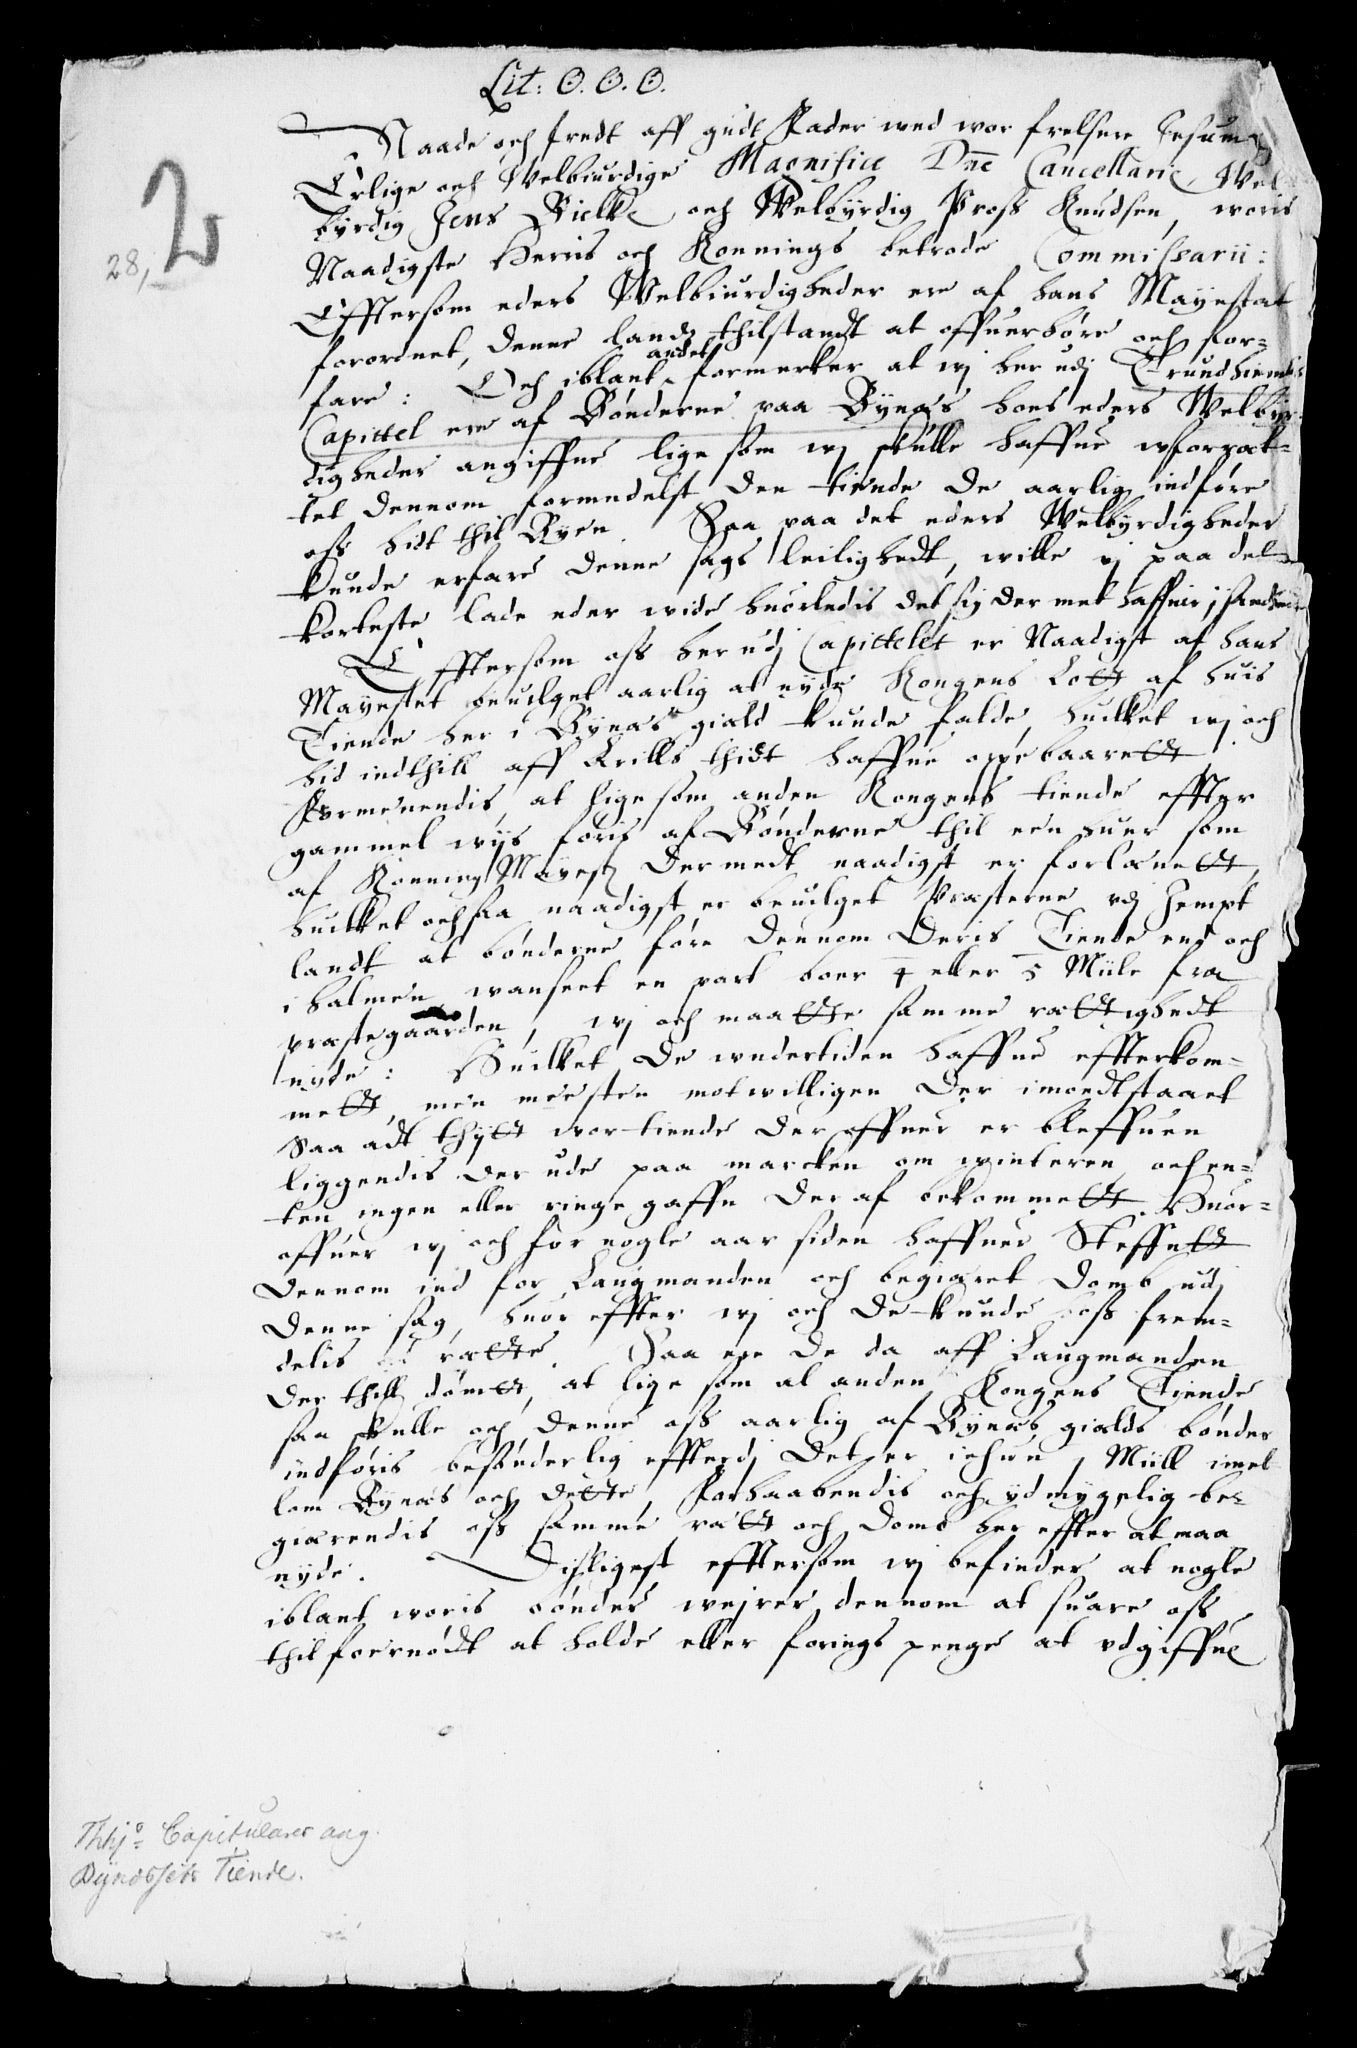 Lit: O. O. O.
Naade och fredt aff gudt Fader wed wor frelsere Jesum
Erlige och Welbiurdige Magnifice Dnē Cancellarie, Wel
byrdig Jens Bielke och Welbyrdig Pross Knudsen, woris
Naadigste Herris och Konnings betrode Commissarii:
Efftersom eders Welbiurdigheder ere af hans Mayestat
forordnet, denne landz thilstandt at offuerhöre och for-
fare: Och iblant andet formerker at wj her udj Trundhiembs
Capittel ere af Bönderne paa Bynæs hoes eders Welbyr-
digheder angiffne lige som wj skulle haffue wforræt-
tet dennom formedelst den tiende de aarlig indföre
oss hidt thil Byen. Saa paa det eders Welbyrdigheder
kunde erfare denne sags leilighedt, wille wj paa det
korteste lade eder wide huorledis det sig der met haffuer, i sandhed
Efftersom oss her udj Capittelet er Naadigst af hans
Mayestet beuilget aarlig at nyde Kongens Lott af huis
Tiende her i Bynæs gield kunde falde, huilket wj och
hid indthill aff Arilds thidt haffue oppebaarett
Formenendis, at lige som anden Kongens tiende effter
gammel wijs föris af Bönderne thil een huer som
af Konning Mayestz dermedt naadigst er forlænett,
huilket och saa naadigst er beuilget Præsterne udj Jempt
landt at bönderne före dennom deris Tiende end och
i halmen, wanseet en part boer 4 eller 5 Miile fra
præstegaarden, wj och maatte samme rættighedt
nyde: Huilket de wndertiden haffue effterkom-
mett, men meesten motwilligen der imoedtstaaet
Saa adt thijtt wor tiende der offuer er bleffuen
liggendis der ude paa marcken om winteren, och en-
ten ingen eller ringe gaffn der af bekommett. Huor-
offuer wj och for nogle aar siden haffuer Steffnett
dennom ind for Laugmanden och begiæret domb udj
denne sag, huor effter wj och de kunde oss frem-
delis at rætte. Saa ere de da aff Laugmanden
der thill dömt, at lige som al anden Kongens Tiende
saa skulle och denne oss aarlig af Bynæs gields bönder
indföris besönderlig effterdj det er ichun 1 Miill imel
lom Bynæs och dette, Forhaabendis och ydmygelig be-
giærendis oss samme rætt och domb her effter at maa
nyde. Disligest efftersom wj befinder at nogle
iblant woris bönder wejrer dennom at suare oss
thil foernödt at holde eller forings penge at udgiffue
28, 2
Thhj:º Capitulares ang.
Bynæssets Tiende.